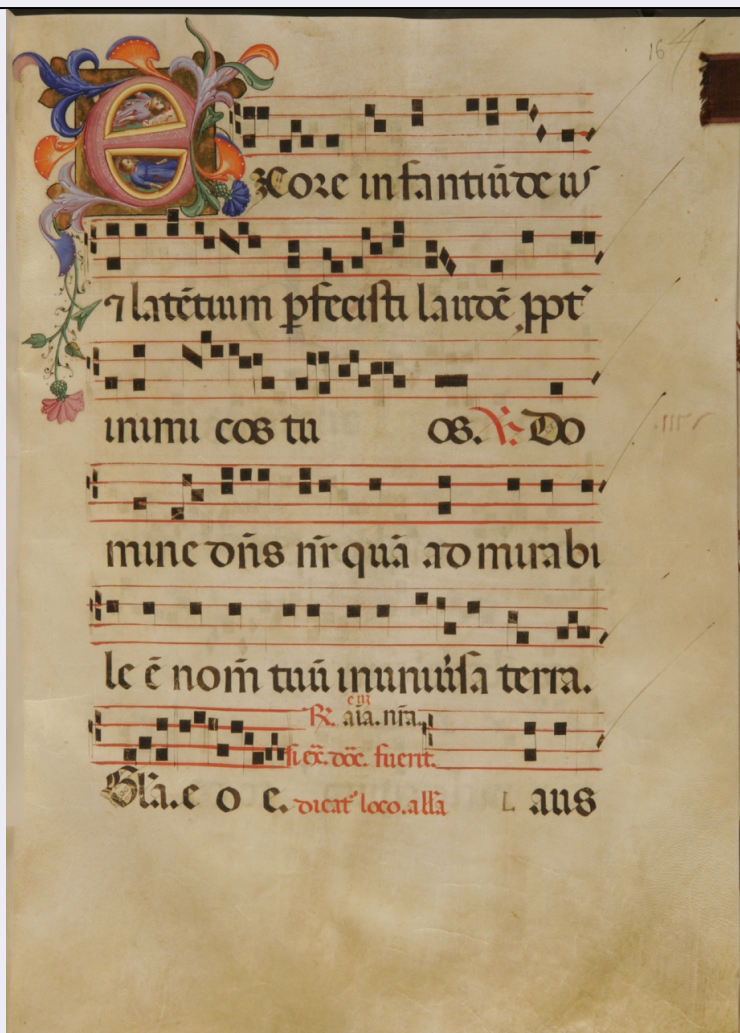 16
EX ore infantiũ de us
⁊ latẽtium ꝑfecisti laudẽ ppt᷒
inimi cos tu os. ℣. Do
mine dñs nr̃ quã ad mirabi
le ẽ nom̃ tuũ in uniũsa terra.
℟. aĩa. nr̃a.
si ex̃. dõc. fuerit.
Gl̃a. e o e. dicat᷒ loco. all̃a Laus